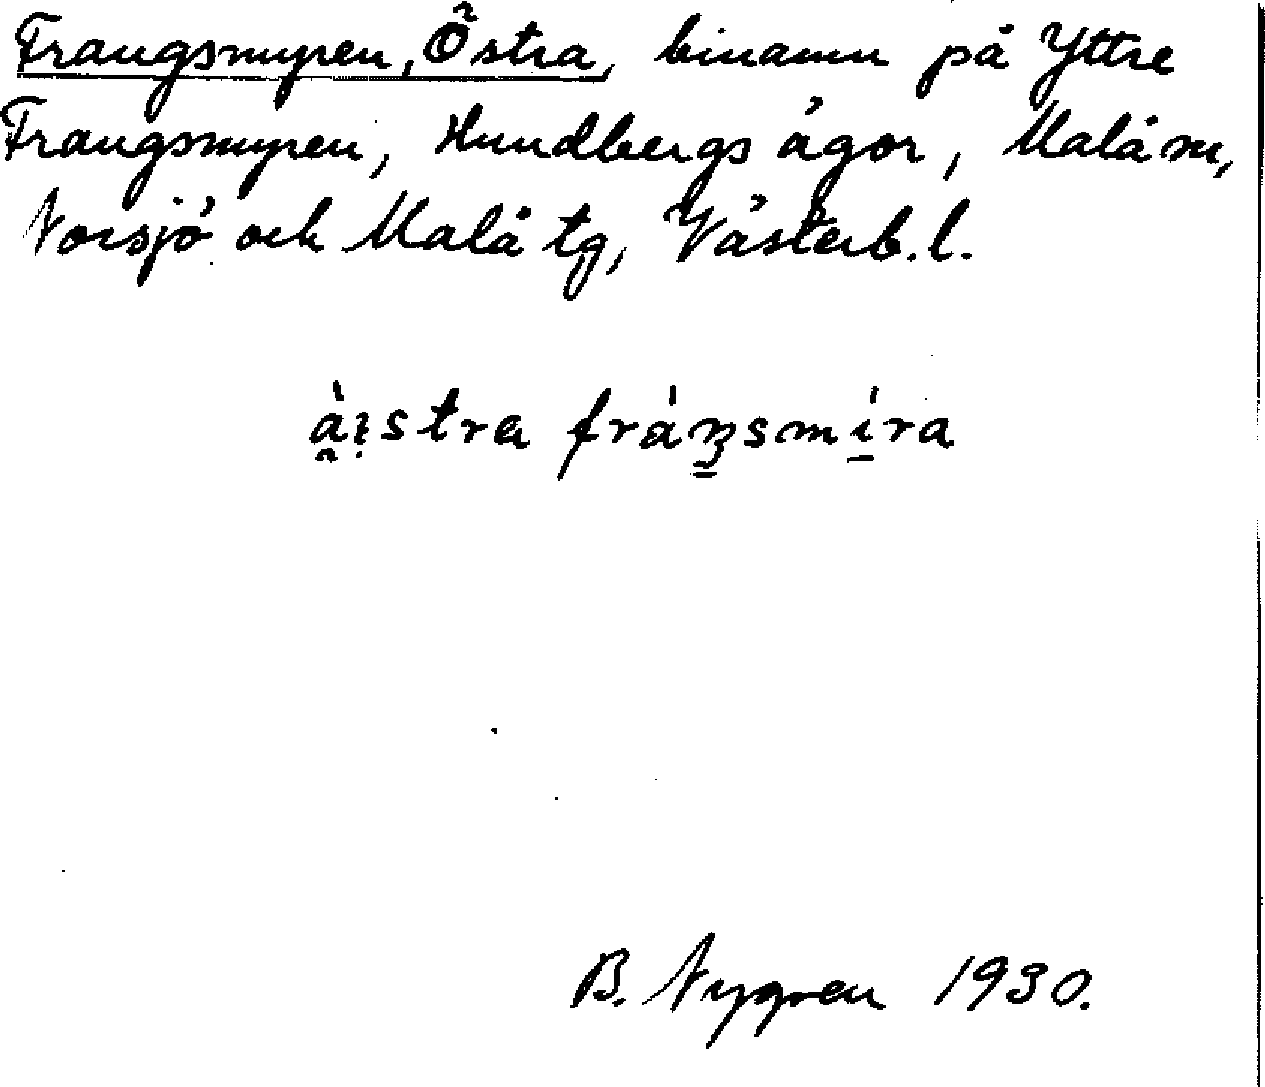 Frangsmyren, Östra, binamn på Yttre
Frangsmyren, Hundbergs ägor, Malå sn,
Norsjö och Malå tg, Västerb. l.
östra
B. Nygren 1930.